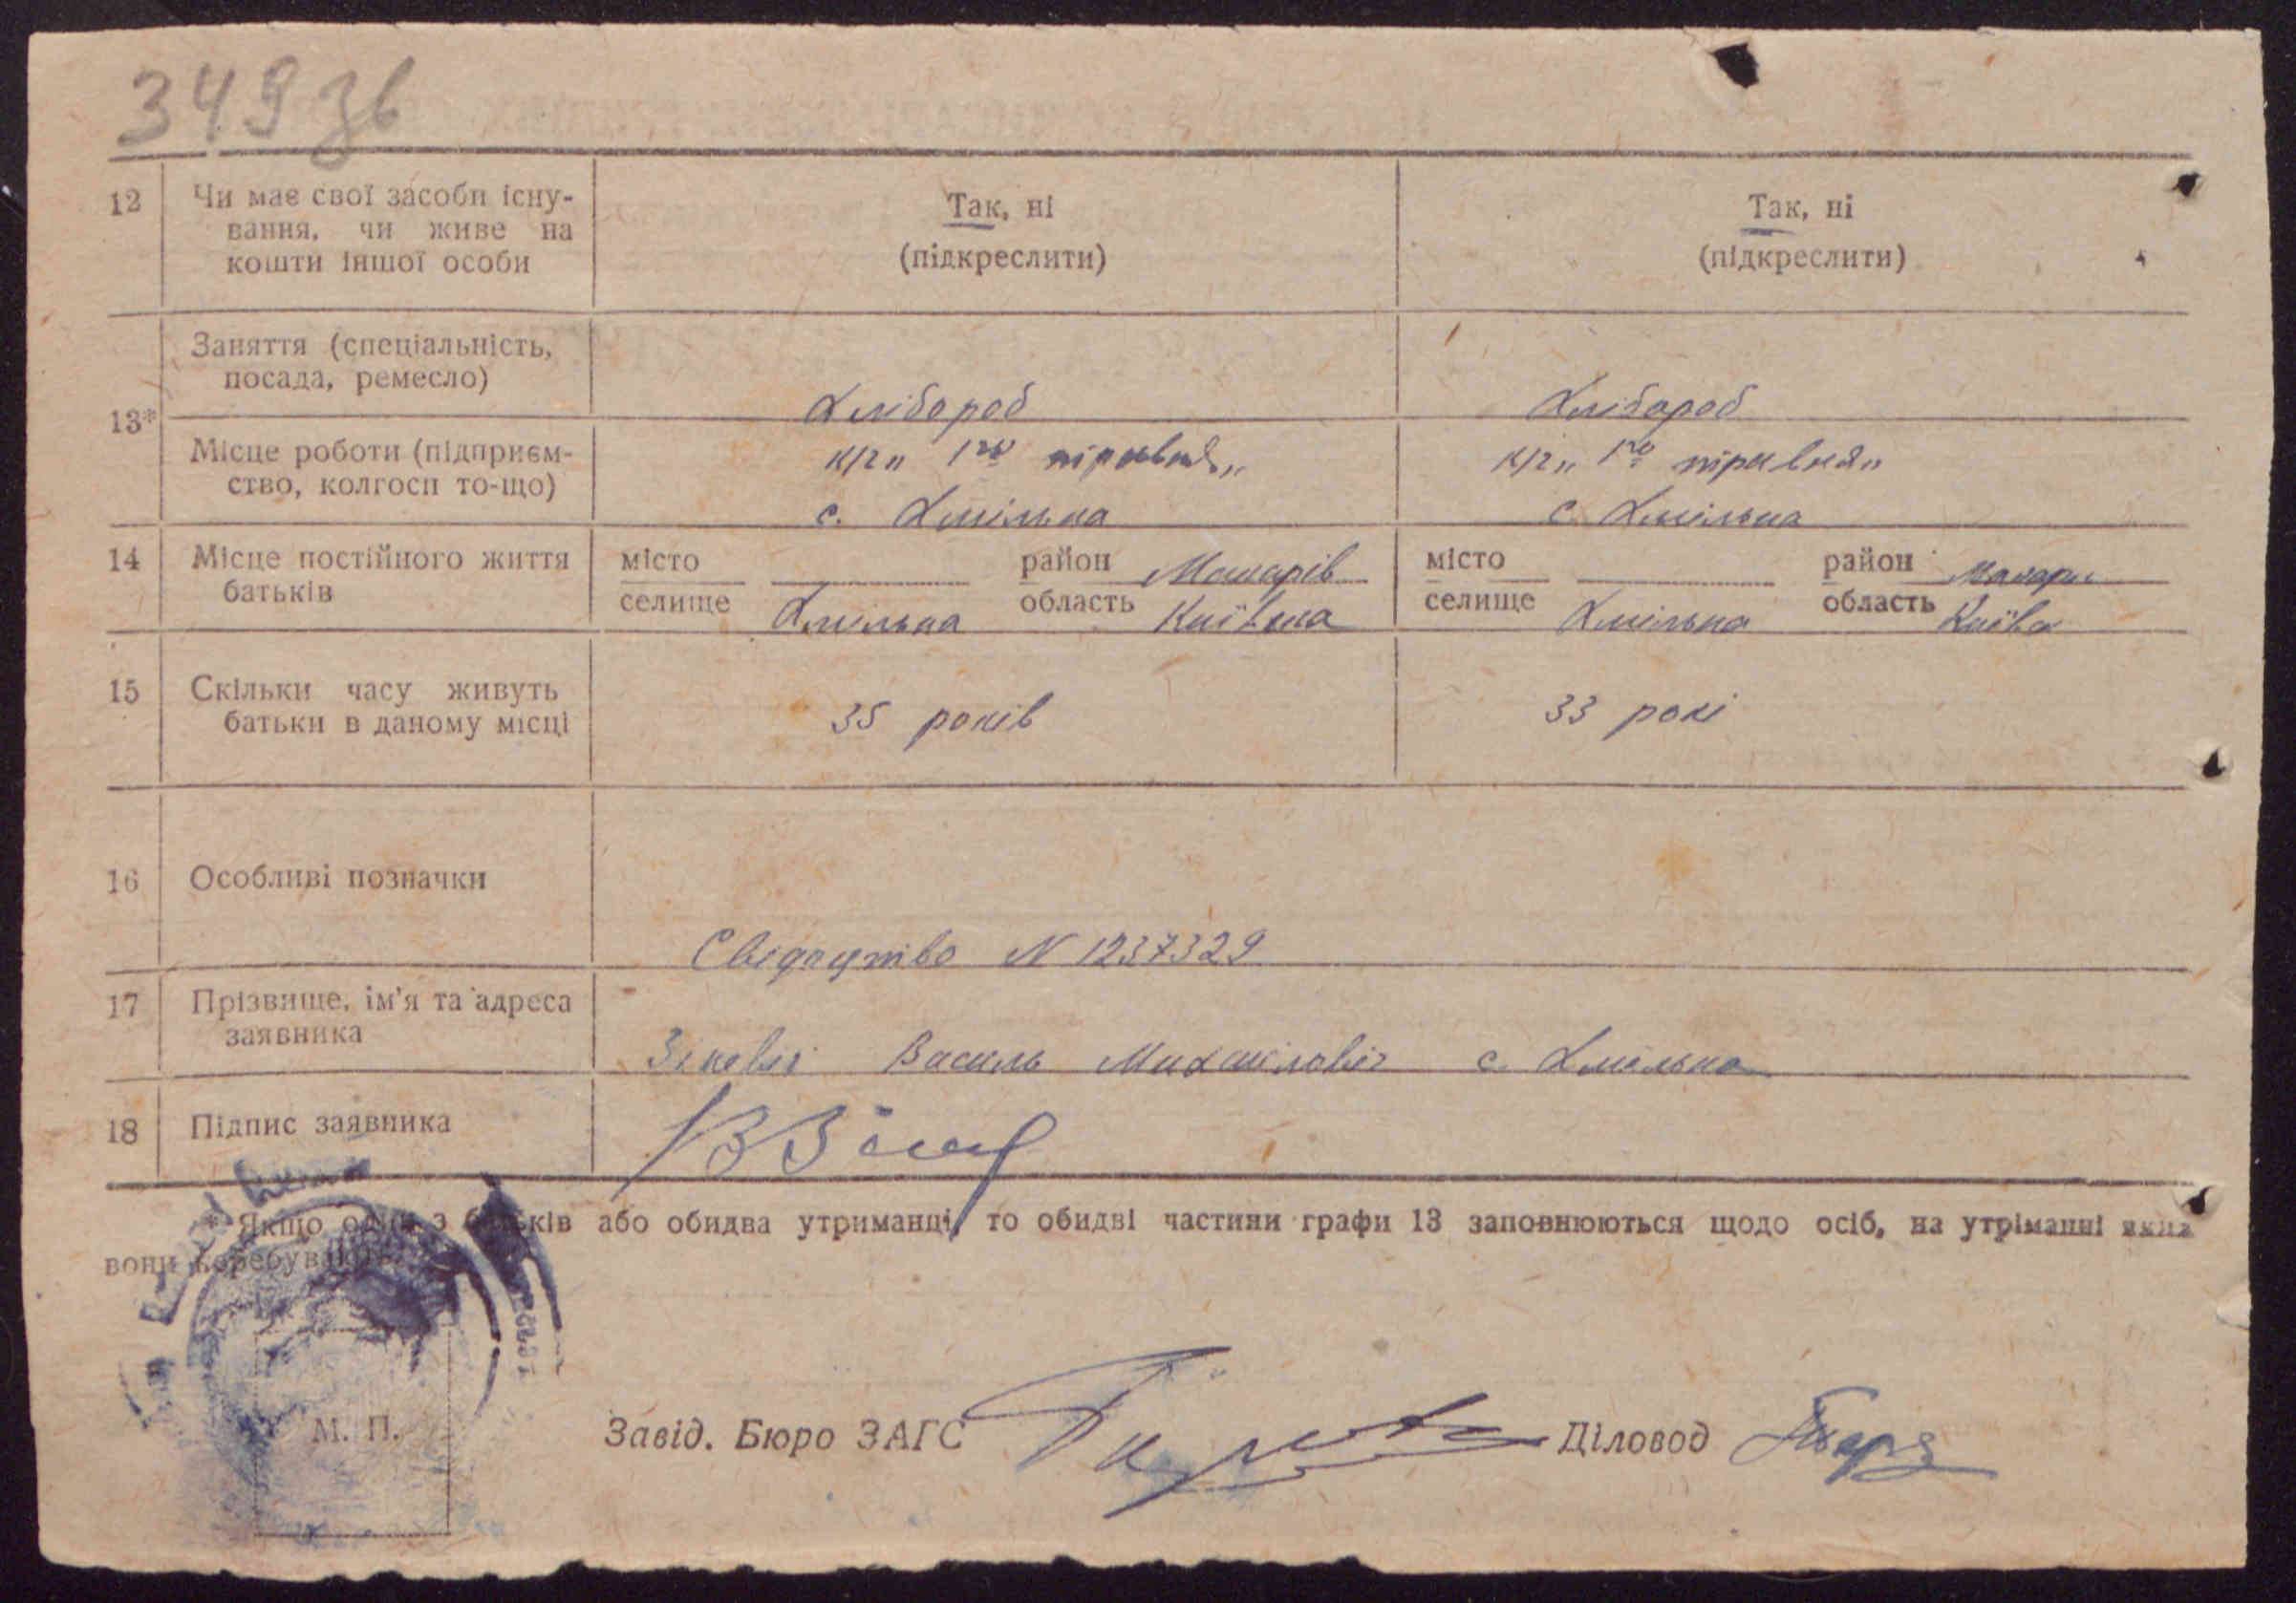 349 зв
12 Чи має свої засоби існу- Так, ні Так, ні
вання, чи живе на
кошти іншої особи (підкреслити) (підкреслити)
Заняття (спеціальність,
посада, ремесло) Хлібороб Хлібороб
13*
Місце роботи (підприєм- к/г „ 1го травня„ к/г „ 1го травня„
ство, колгосп то-що) с. Хмільна с. Хмільна
14 Місце постійного життя місто район Макарів місто район Макарів
батьків селище Хмільна область Київська селище Хмільна область Київська
15 Скільки часу живуть 35 років 33 рокі
батьки в даному місці
16 Особливі позначки
Свідоцтво N 1237329
17 Прізвище, ім'я та адреса
заявника Василь Михайлович с. Хмільна
18 Підпис заявника
* Якщо один з батьків або обидва утриманці, то обидві частини графи 13 заповнюються щодо осіб, на утріманні яких
вони перебувають.
М. П. Завід. Бюро ЗАГС Діловод